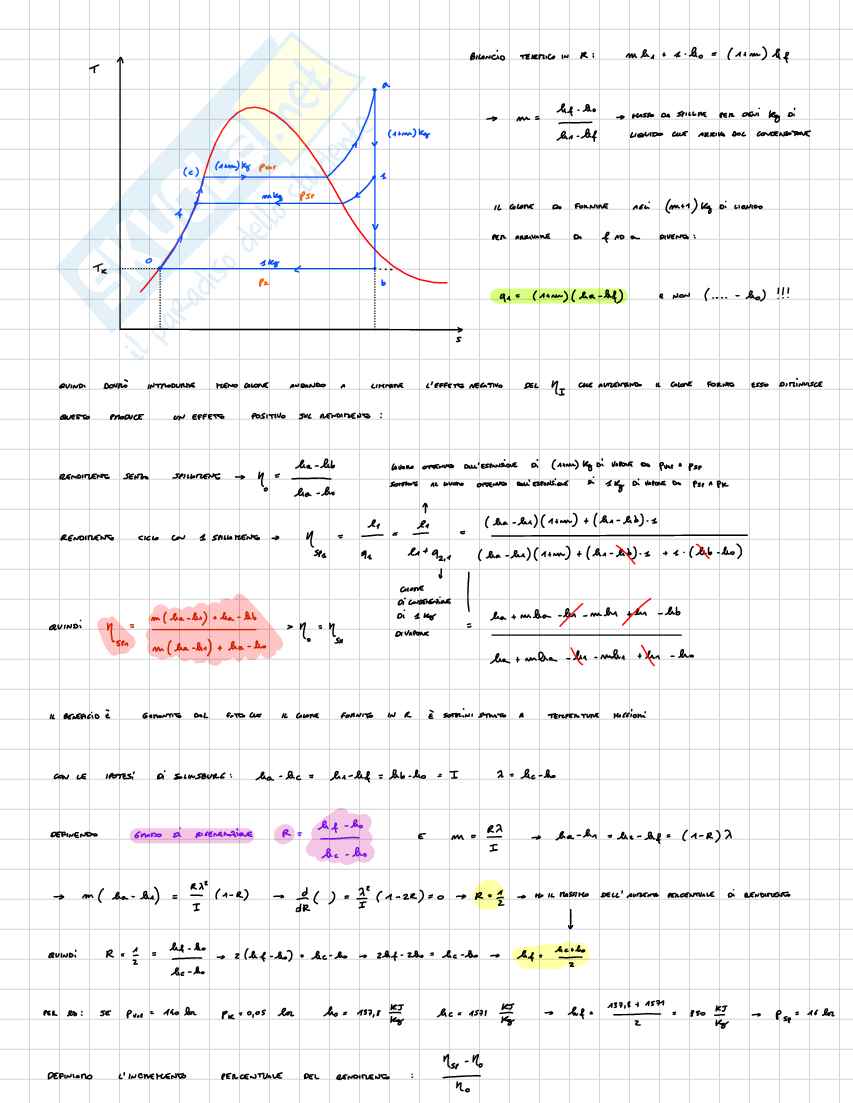 BILANCIO TERMICO IN R: m h1 + 1·h0 = (1+m) hf
→ m = (hf - h0)/(h1 - hf) → MASSA DA SPILLARE PER OGNI Kg DI
LIQUIDO CHE ARRIVA DAL CONDENSATORE
T
a
(1+m) Kg
(c) (1+m) Kg
1
m Kg
f
0
1 Kg
TK
b
s
SKUOLA.net
il paradiso dello studente
IL CALORE DA FORNIRE AGLI (m+1) Kg DI LIQUIDO
PER ARRIVARE DA f AD a DIVENTA:
q1 = (1+m)(ha - hf) E NON (.... - h0) !!!
QUINDI DOVRÒ INTRODURRE MENO CALORE ANDANDO A LIMITARE L'EFFETTO NEGATIVO DEL ηI CHE AUMENTANDO IL CALORE FORNITO ESSO DIMINUISCE
QUESTO PRODUCE UN EFFETTO POSITIVO SUL RENDIMENTO:
RENDIMENTO SENZA SPILLAMENTO → η0 = (ha - hb)/(ha - h0)
LAVORO OTTENUTO DALL'ESPANSIONE DI (1+m) Kg DI VAPORE DA
SOMMATO AL LAVORO OTTENUTO DALL'ESPANSIONE DI 1 Kg DI VAPORE DA
RENDIMENTO CICLO CON 1 SPILLAMENTO → ηSP1 = l1/q1 = l1/(l1 + q2,1) = ((ha - h1)(1+m) + (h1 - hb)·1)/((ha - h1)(1+m) + (h1 - hb)·1 + 1·(hb - h0))
CALORE
DI CONDENSAZIONE
DI 1 Kg
DI VAPORE
= (ha + mha - h1 - mh1 + h1 - hb)/(ha + mha - h1 - mh1 + h1 - h0)
QUINDI ηSP1 = (m(ha - h1) + ha - hb)/(m(ha - h1) + ha - h0) > η0 = ηSP
IL BENEFICIO È GARANTITO DAL FATTO CHE IL CALORE FORNITO IN R È SOMMINISTRATO A TEMPERATURE MAGGIORI
CON LE IPOTESI DI SALISBURY: ha - hc = h1 - hf = hb - h0 = I λ = hc - h0
DEFINENDO GRADO DI RIGENERAZIONE R = (hf - h0)/(hc - h0) E m = Rλ/I → ha - h1 = hc - hf = (1-R) λ
→ m(ha - h1) = Rλ²/I (1-R) → d/dR ( ) = λ²/I (1-2R) = 0 → R = 1/2 → HO IL MASSIMO DELL'AUMENTO PERCENTUALE DI RENDIMENTO
QUINDI R = 1/2 = (hf - h0)/(hc - h0) → 2(hf - h0) = hc - h0 → 2hf - 2h0 = hc - h0 → hf = (hc + h0)/2
PER ES: SE = 140 bar pK = 0,05 bar h0 = 137,8 KJ/Kg hc = 1571 KJ/Kg → hf = (137,8 + 1571)/2 = 850 KJ/Kg → pSP = 16 bar
DEFINIAMO L'INCREMENTO PERCENTUALE DEL RENDIMENTO: (ηSP - η0)/η0